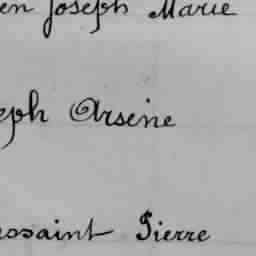 en Joseph Marie
eph Arsène
ossaint Pierre